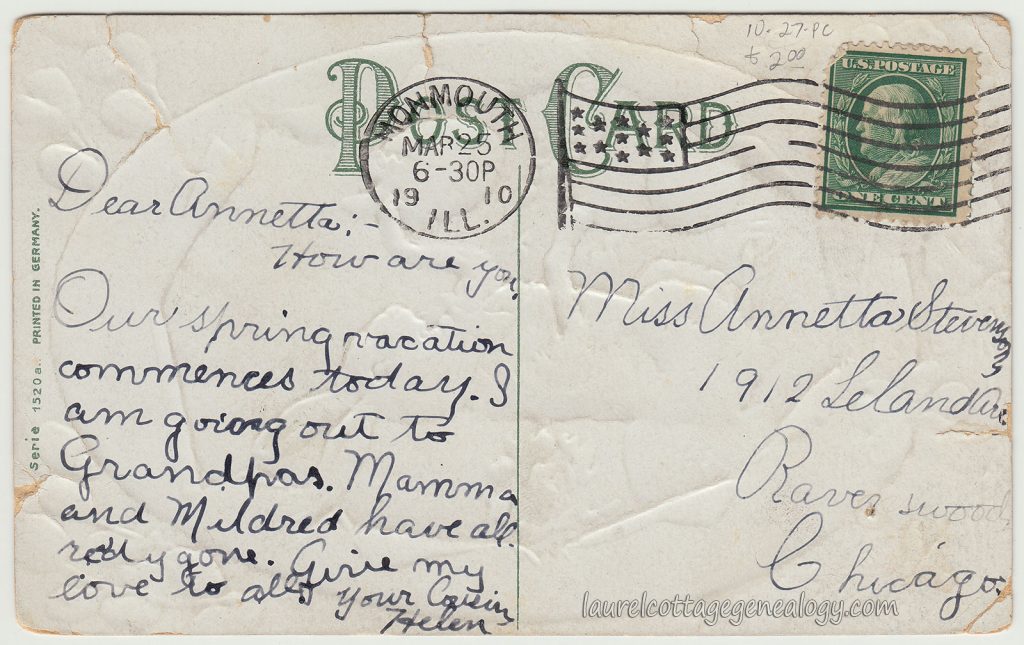 10-27-PC
$2.00
POST CARD
U.S. POSTAGE
ONE CENT
MONMOUTH
MAR 25
6-30P
1910
ILL.
Dear Annetta;-
How are you,
Our spring vacation
commences today. I
am going out to
Grandpas. Mamma
and Mildred have all
redy gone. Give my
love to all, your Cousin
Helen
Miss Annetta Stevenson
1912 Leland Ave.
Ravenswood,
Chicago.
Serie 1520a.. PRINTED IN GERMANY.
laurelcottagegenealogy.com